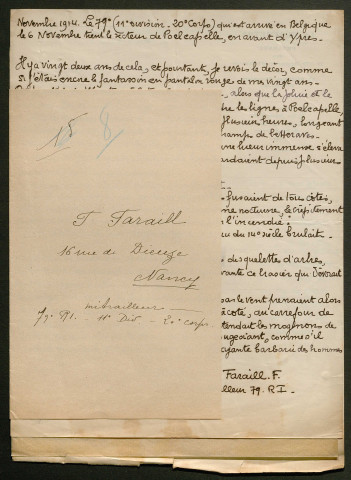 Novembre 1914. Le 79e (11e division - 20e Corps) qui est arrivé en Belgique
le 6 Novembre tient le secteur de Poelcapelle, en avant d'Ypres -
Il y a vingt deux ans de cela, et pourtant, je revois le décor, comme
si j'étais encore le fantassin en pantalon rouge de mes vingt ans -
alors que la pluie et le
les lignes à Poelcapelle,
plusieurs heures, longeant
champs de betteraves -
une lueur immense s'éleva
depuis plusieurs
fusaient de tous côtés,
nocturne, le crépitement
l'incendie!
du 14e siècle brûlait -
des squelettes d'arbres,
brasier qui dévorait
le vent prenaient alors
à côté, au carrefour de
tendait les moignons de
comme s'il
barbarie des hommes
Faraill. F.
79. R.I -
15
8
F Faraill
16 rue de Dieuze
Nancy
mitrailleur
79e R.I. - 11e Div - 20e corps